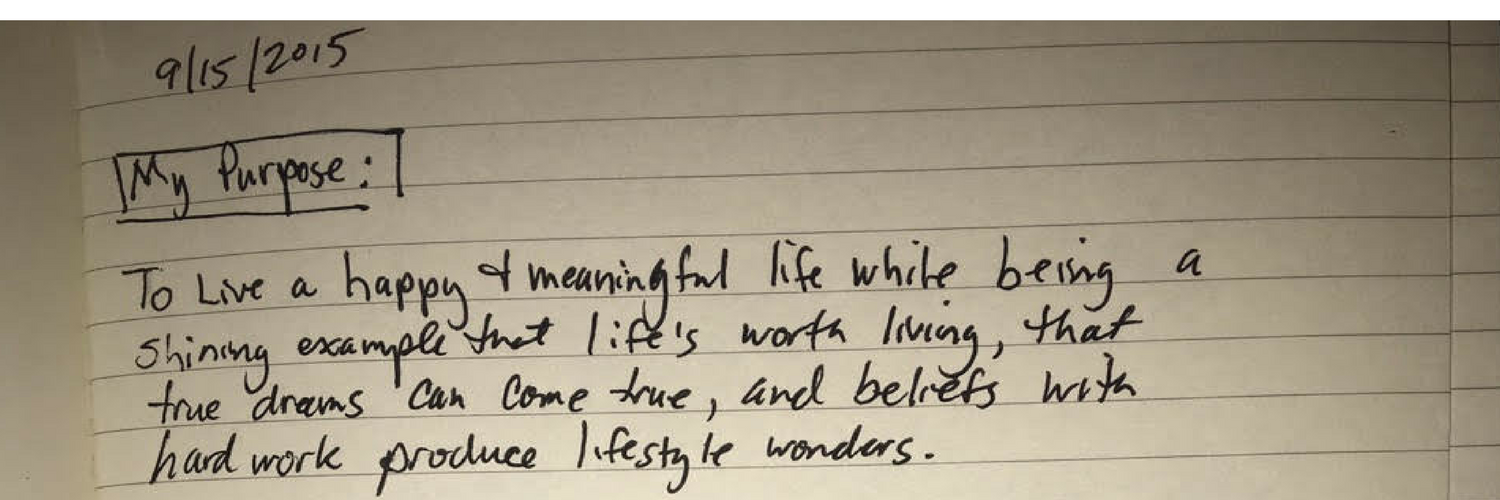 9/15/2015
My Purpose:
To Live a happy & meaningful life while being a
shining example that life's worth living, that
true dreams can come true, and beliefs with
hard work produce lifestyle wonders.